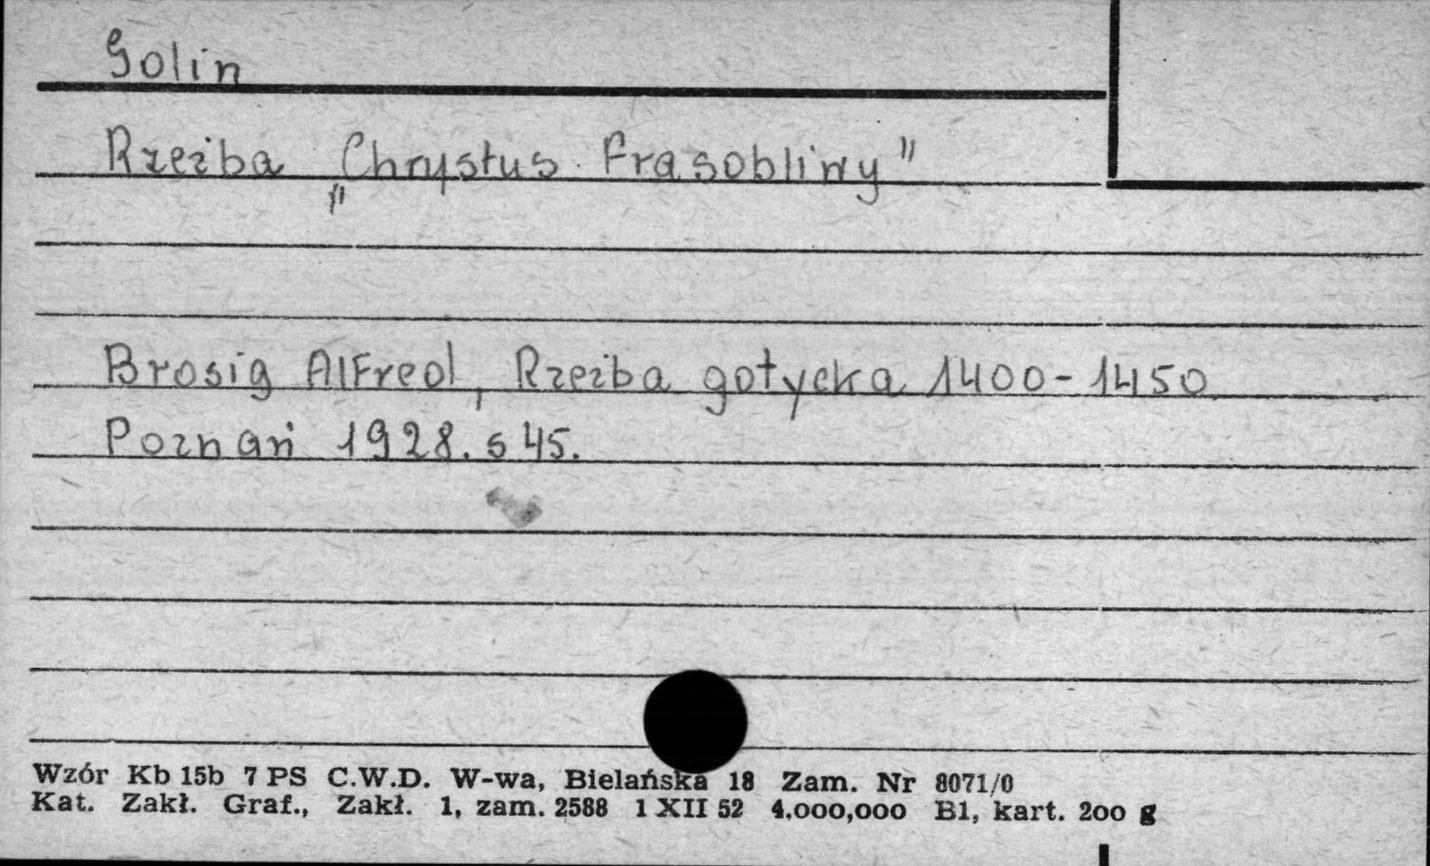 Golin
Rzeźba „Chrystus Frasobliwy"
Brosig Alfred, Rzeźba gotycka 1400-1450
Poznań 1928. s 45.
Wzór Kb 15b 7 PS C.W.D. W-wa, Bielańska 18 Zam. Nr 8071/0
Kat. Zakł. Graf., Zakł. 1, zam. 2588 1 XII 52 4.000,000 B1, kart. 200 g